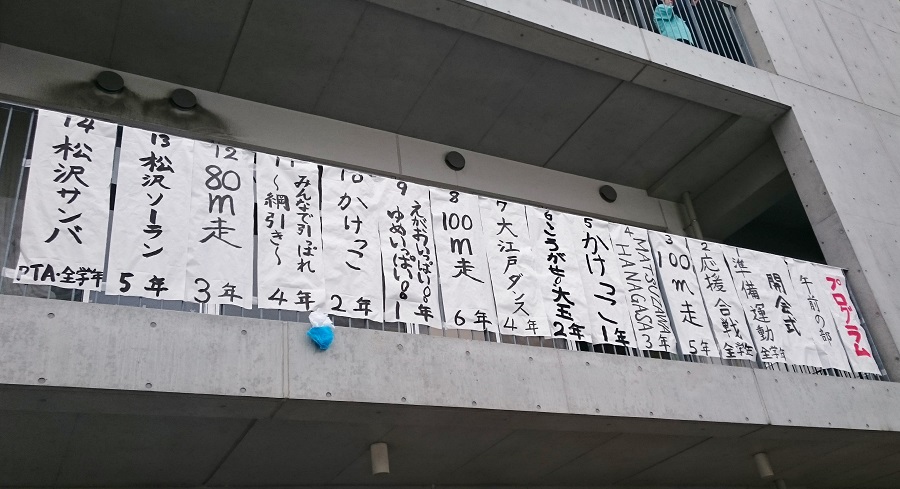 プログラム
午前の部
開会式
準備運動
全学年
2
応援合戦
全学年
3
100m走
5年
4
MATSUZAWA
HANAGASA
3年
5
かけっこ
1年
6
こうがせの大王
2年
7
大江戸ダンス
4年
8
100m走
6年
9
えがおいっぱい8
ゆめいっぱい8
1年
10
かけっこ
2年
11
みんなで引っぱれ
〜綱引き〜
4年
12
80m走
3年
13
松沢ソーラン
5年
14
松沢サンバ
PTA・全学年